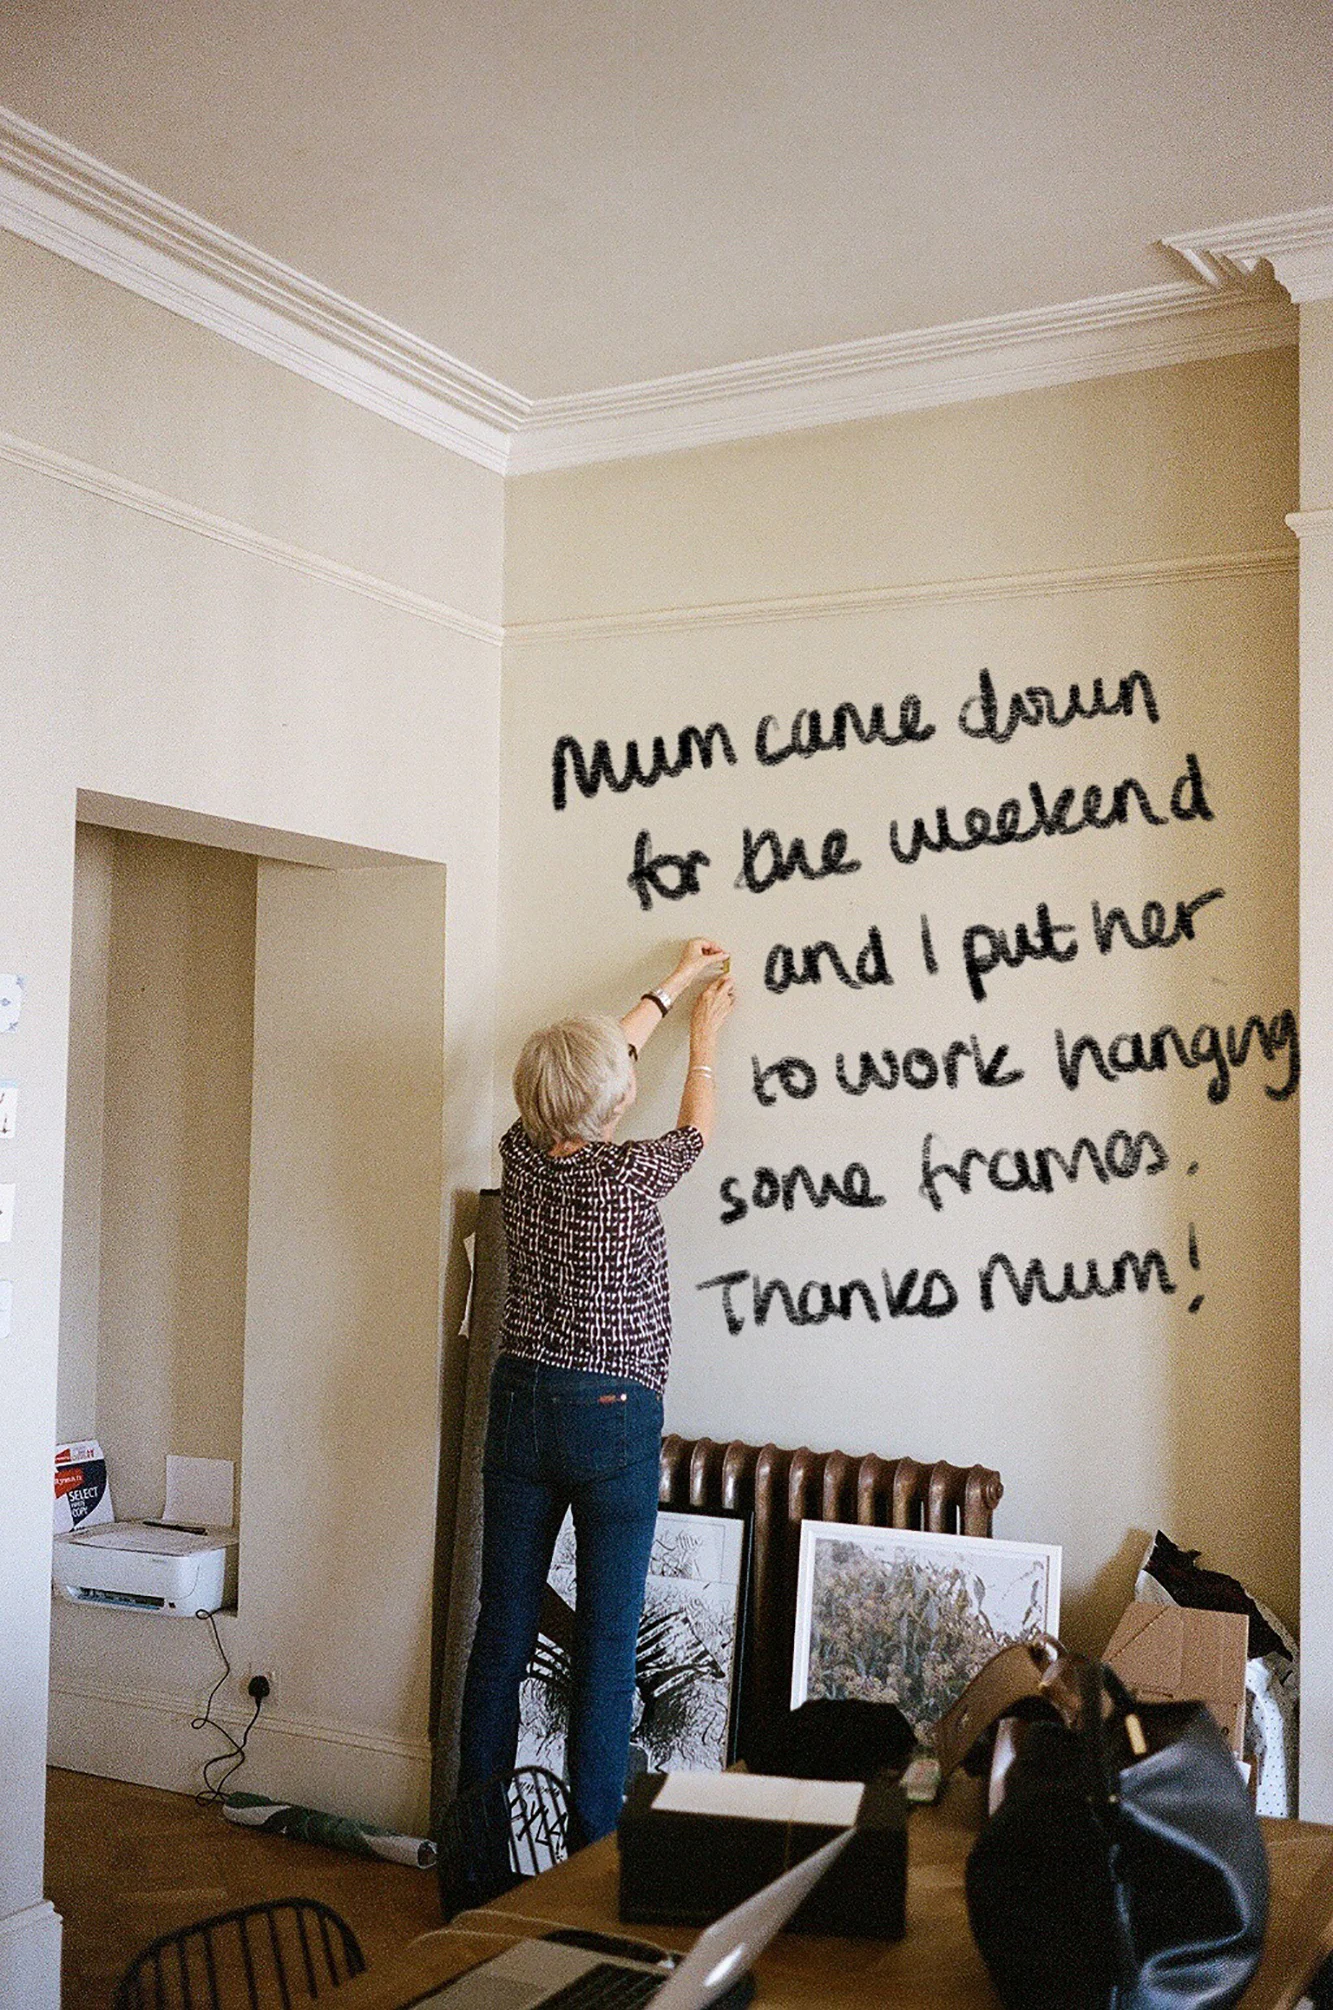 Mum came down
for the weekend
and I put her
to work hanging
some frames.
Thanks Mum!
Ryman
SELECT
COPY